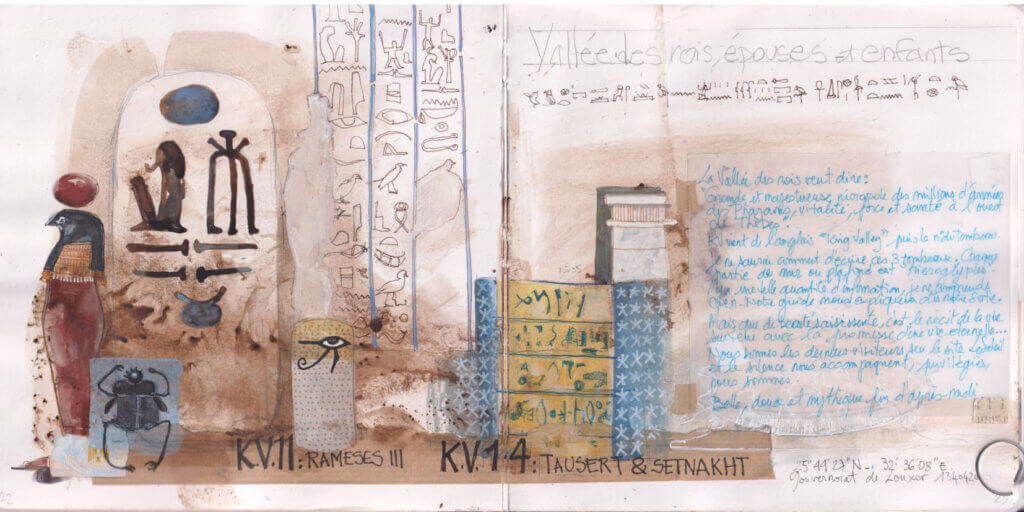 Vallée des rois, épouses et enfants
La Vallée des rois veut dire:
Grande et majestueuse nécropole des millions d'années
des Pharaons, vitalité, force et santé à l'ouest
de Thèbes.
KV vient de l'anglais "King Valley" puis le n° du tombeau.
Je ne saurai comment décrire ces 3 tombeaux. Chaque
partie de mur ou plafond est hiéroglyphes.
quantité d'information, je ne comprends
rien. Notre guide nous explique
Mais que de beauté saisissante, c'est le récit de la vie
avec la promesse d'une vie éternelle...
Nous sommes les derniers visiteurs sur le site. Le soleil
et le silence nous accompagnent, privilégiés
nous sommes.
Belle, douce et mythique fin d'après-midi
KV.11: RAMESES III
KV.14: TAUSERT & SETNAKHT
5°44'27"N - 32°36'08"E
Gouvernorat de Louxor
22